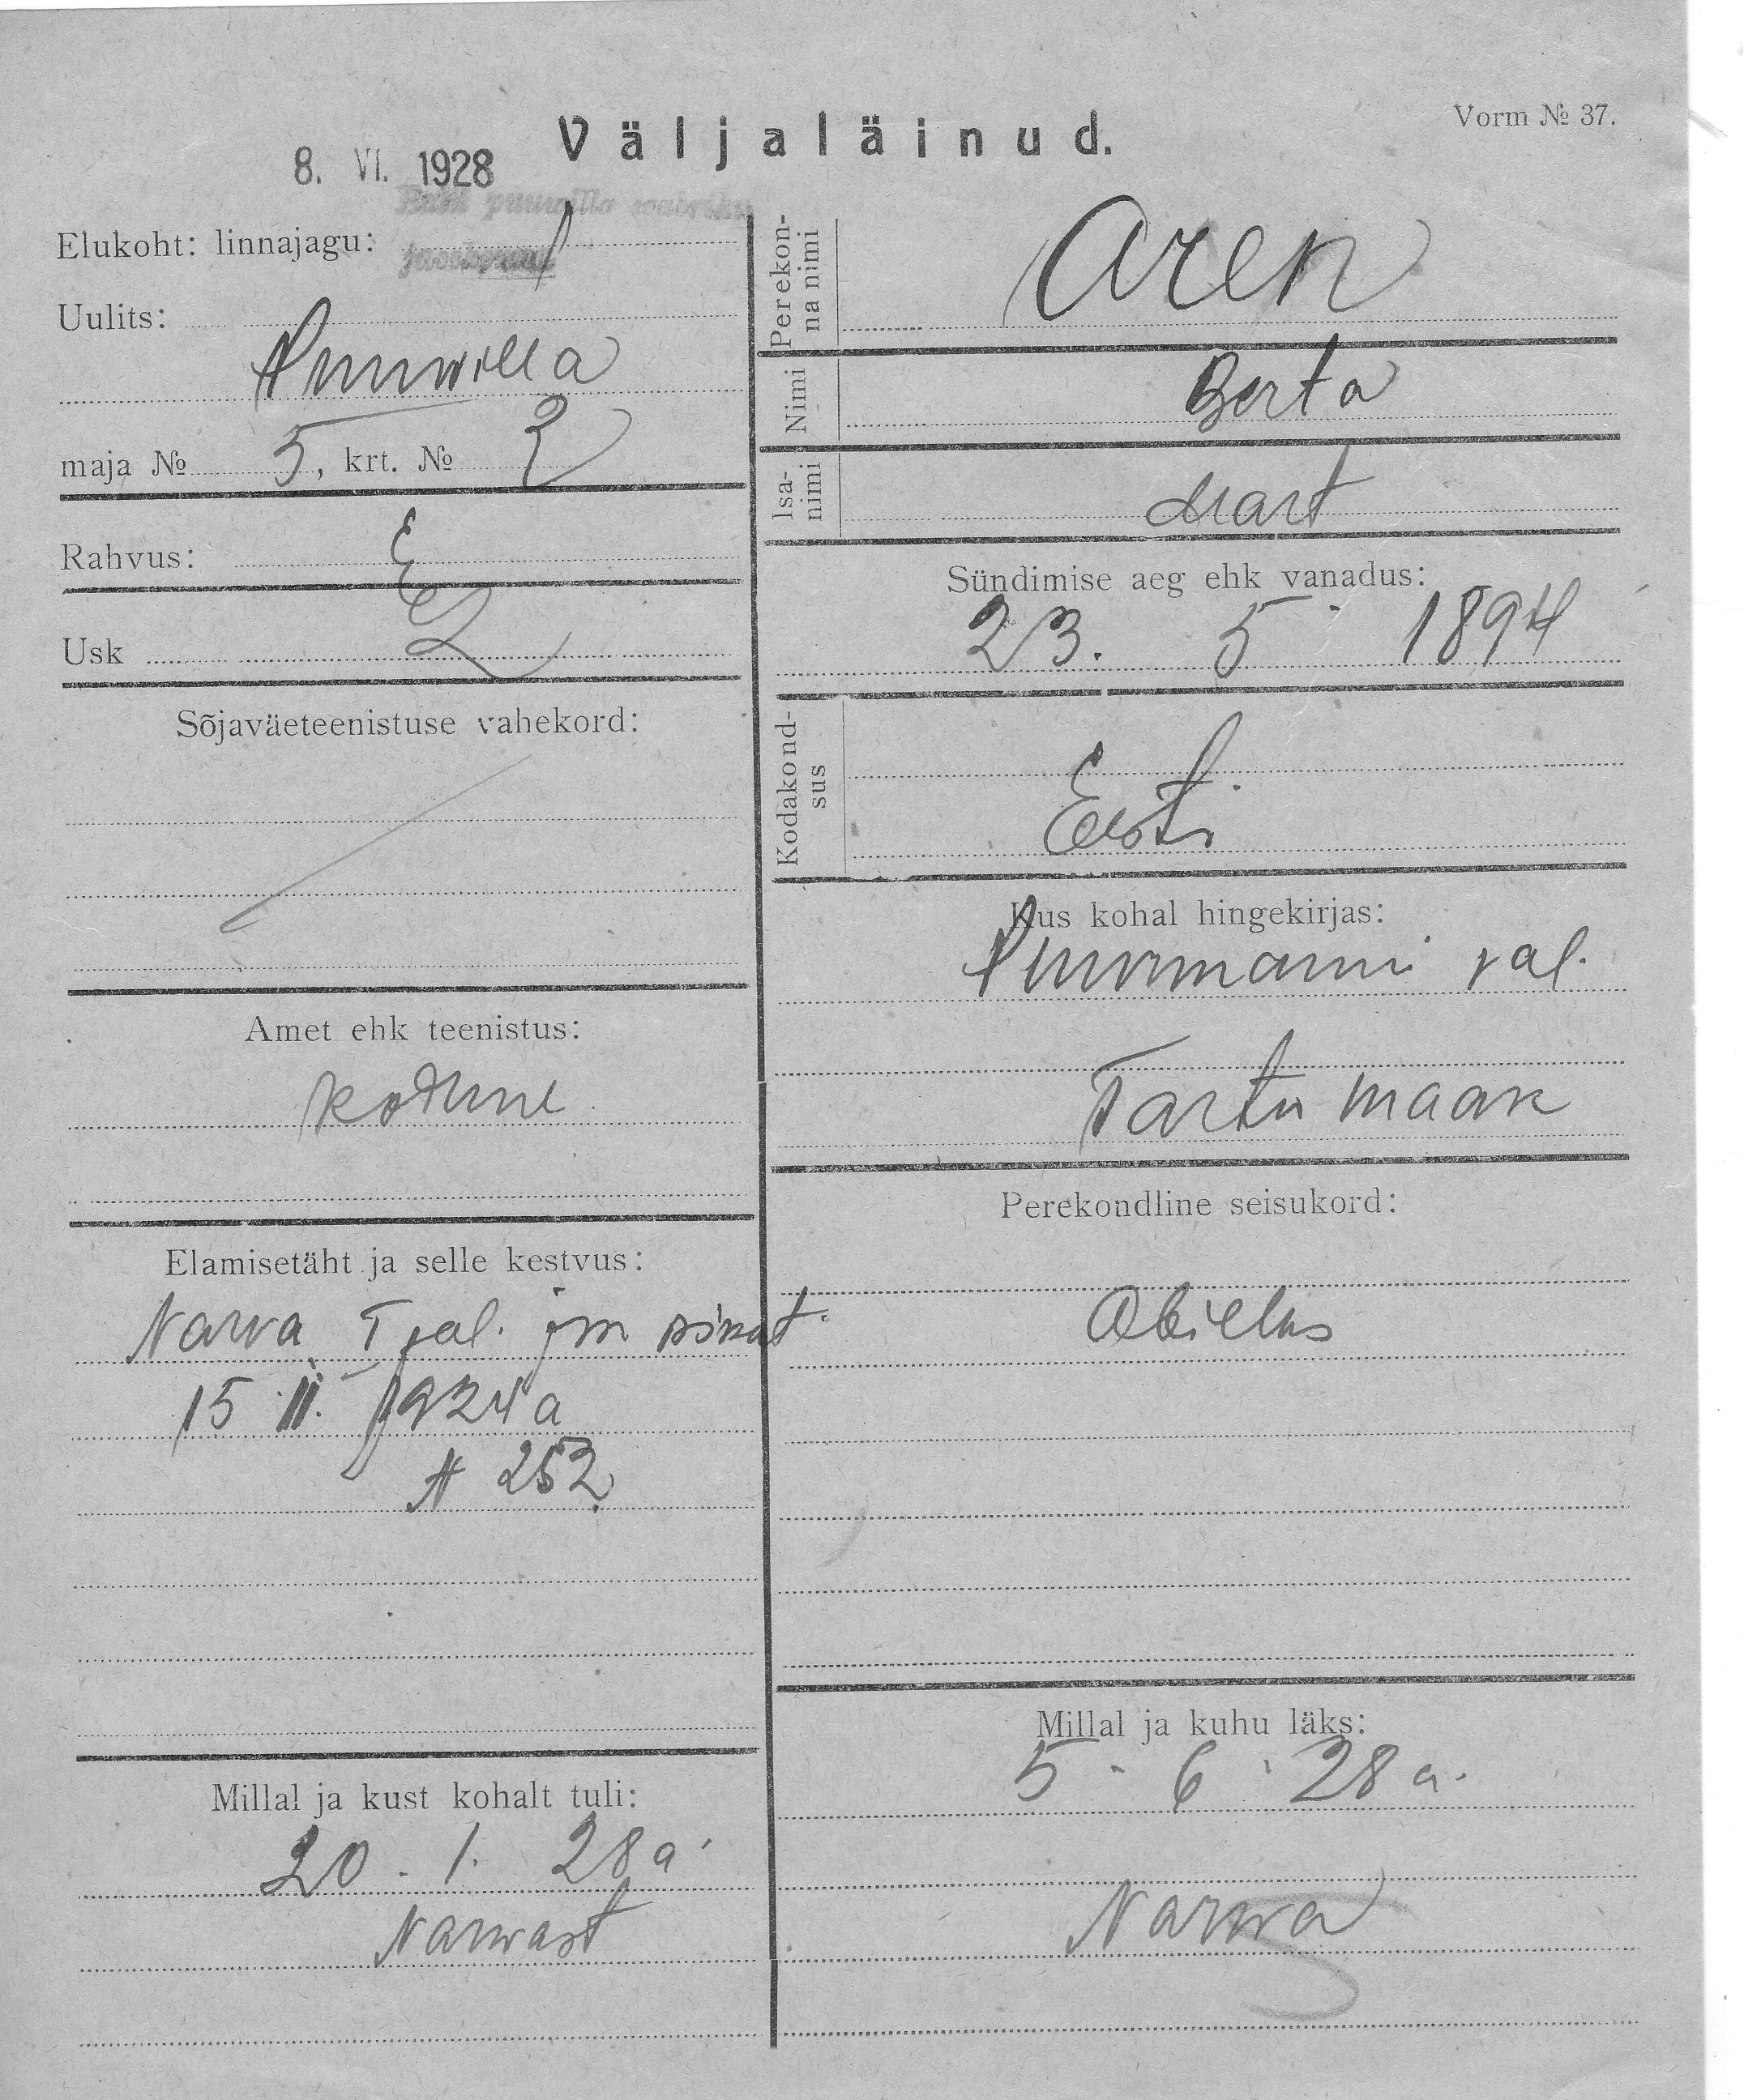 Vorm № 37.
Väljaläinud.
8. VI. 1928
Elukoht: linnajagu:
Uulits:
Puuwilla
maja № 5, krt. № 2
Rahvus: E
Usk L
Sõjaväeteenistuse vahekord:
Amet ehk teenistus:
kodune
Elamisetäht ja selle kestvus:
Narva I jal. jsk
15 II. 1924 a
N 252
Millal ja kust kohalt tuli:
20. 1. 28 a.
Narvast
Perekonna nimi
Aren
Nimi
Berta
Isanimi
Mart
Sündimise aeg ehk vanadus:
23. 5 1894
Kodakondsus
Eesti
Kus kohal hingekirjas:
Puurmanni val.
Tartu maak
Perekondline seisukord:
Abielus
Millal ja kuhu läks:
5. 6. 28 a.
Narva